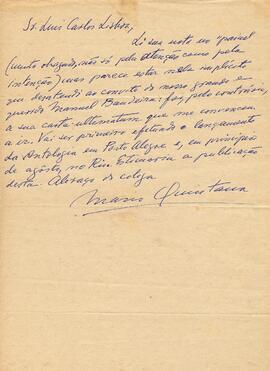 Sr. Luis Carlos Lisboa,
Li sua nota no "painel
(muito obrigado, não só pela atenção como pela
intenção) mas parece estar nela implícito
que desatendi ao convite do nosso grande e
querido Manuel Bandeira: foi, pelo contrário,
a sua carta-ultimatum que me convenceu
a ir. Vai ser primeiro efetuado o lançamento
da Antologia em Porto Alegre e, em princípio
de agosto, no Rio. a publicação
desta. Abraço do colega
Mario Quintana